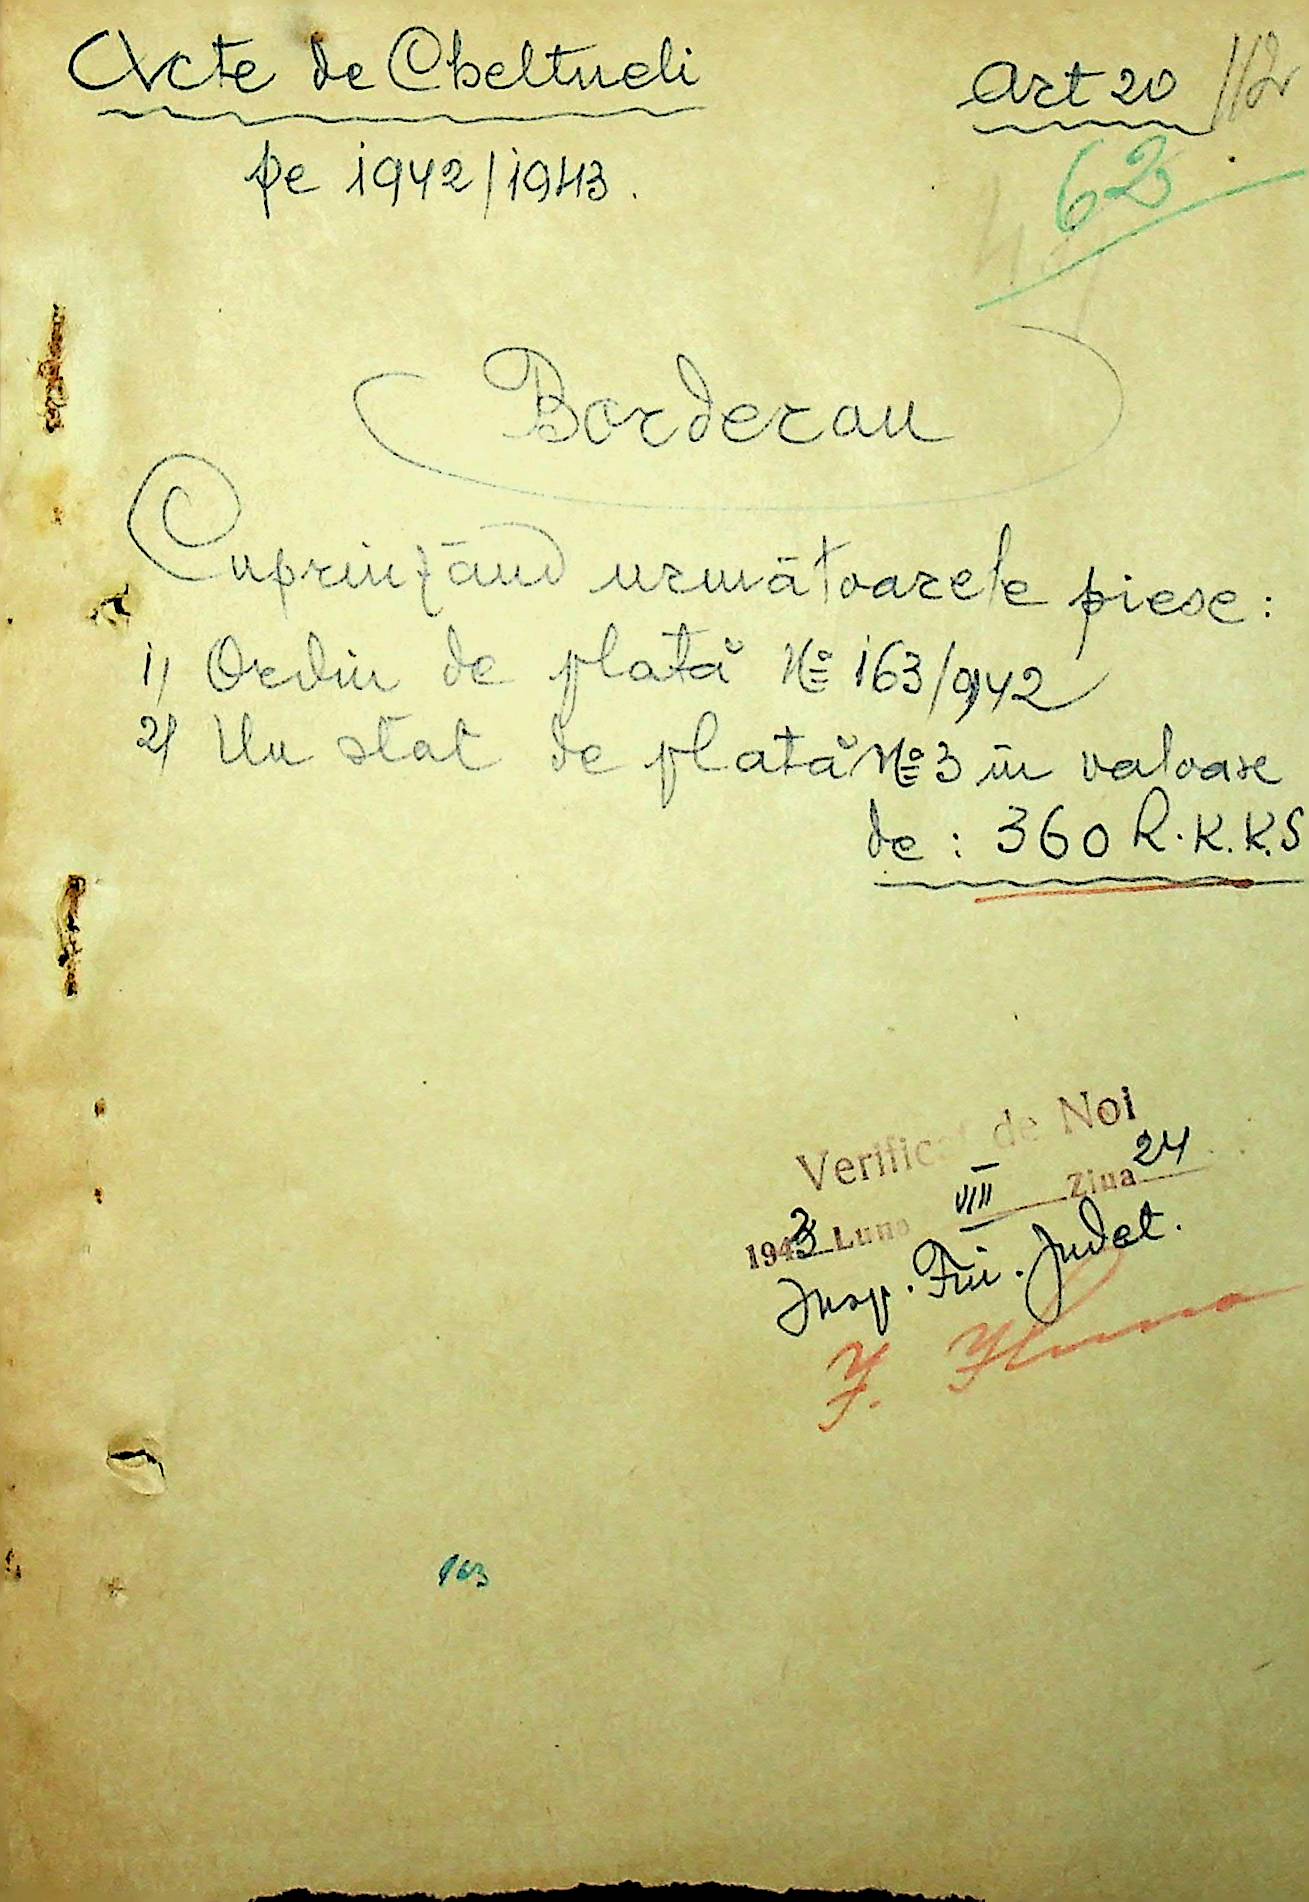 Acte de Cheltueli
Art 20
112
pe 1942/1943.
62
Borderau
Cuprinzând următoarele piese:
1) Ordin de plată № 163/942
2) Un stat de plată № 3 în valoare
de: 360 R.K.K.S
Verificat de Noi
1943 Luna VIII Ziua 24
Insp. Fin. Judet.
163